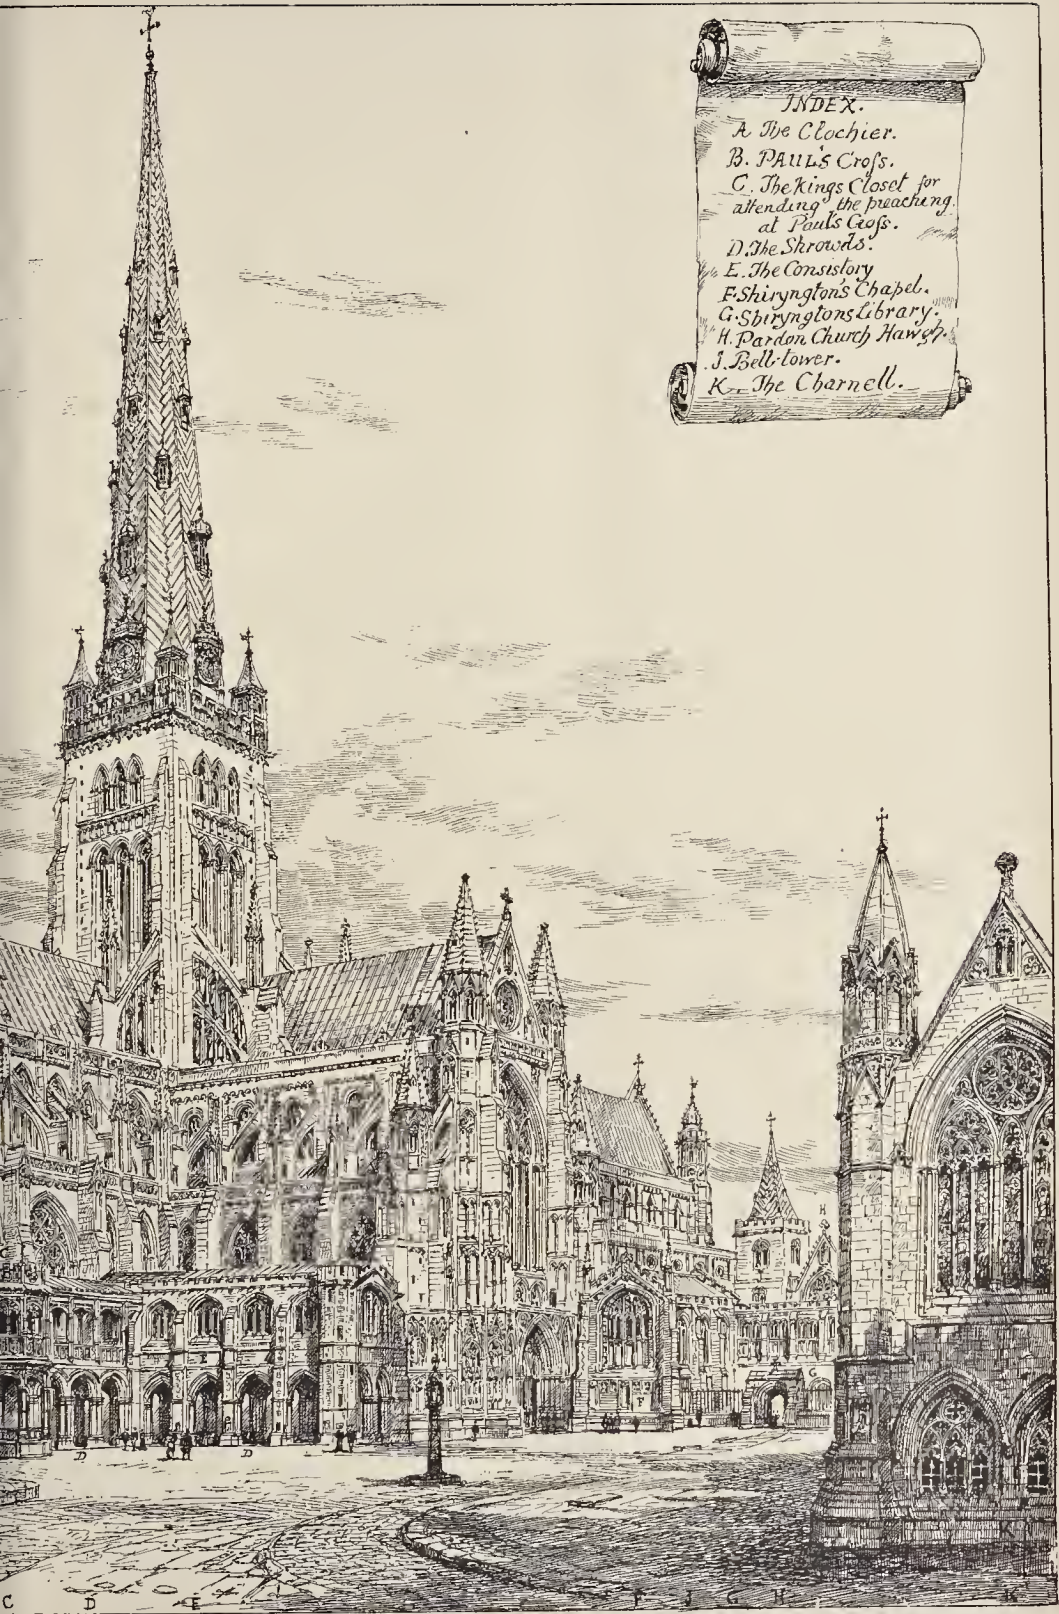 INDEX.
A The Clochier.
B. PAUL'S Croſs.
C. The Kings Closet for
attending the preaching.
at Paul's Croſs.
D. The Shrowds.
E. The Consistory
F. Shiryngton's Chapel.
G. Shiryngtons Library.
H. Pardon Church Hawgh.
J. Bell-tower.
K. The Charnell.
H
E
G
F
D D
K
C D E F J G H K